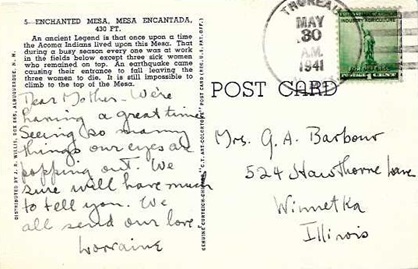 5—ENCHANTED MESA, MESA ENCANTADA,
430 FT.
An ancient Legend is that once upon a time
the Acoma Indians lived upon this Mesa. That
during a busy season every one was at work
in the fields below except three sick women
who remained on top. An earthquake came
causing their entrance to fall leaving the
three women to die. It is still impossible to
climb to the top of the Mesa.
Dear Mother - We're
having a great time
Seeing so many
things our eyes are
popping out. We
sure will have much
to tell you. We
all send our love,
Lorraine
THOREAU
MAY
30
AM.
1941
POST CARD
Mrs. G. A. Barbour
524 Hawthorne Lane
Winnetka
Illinois